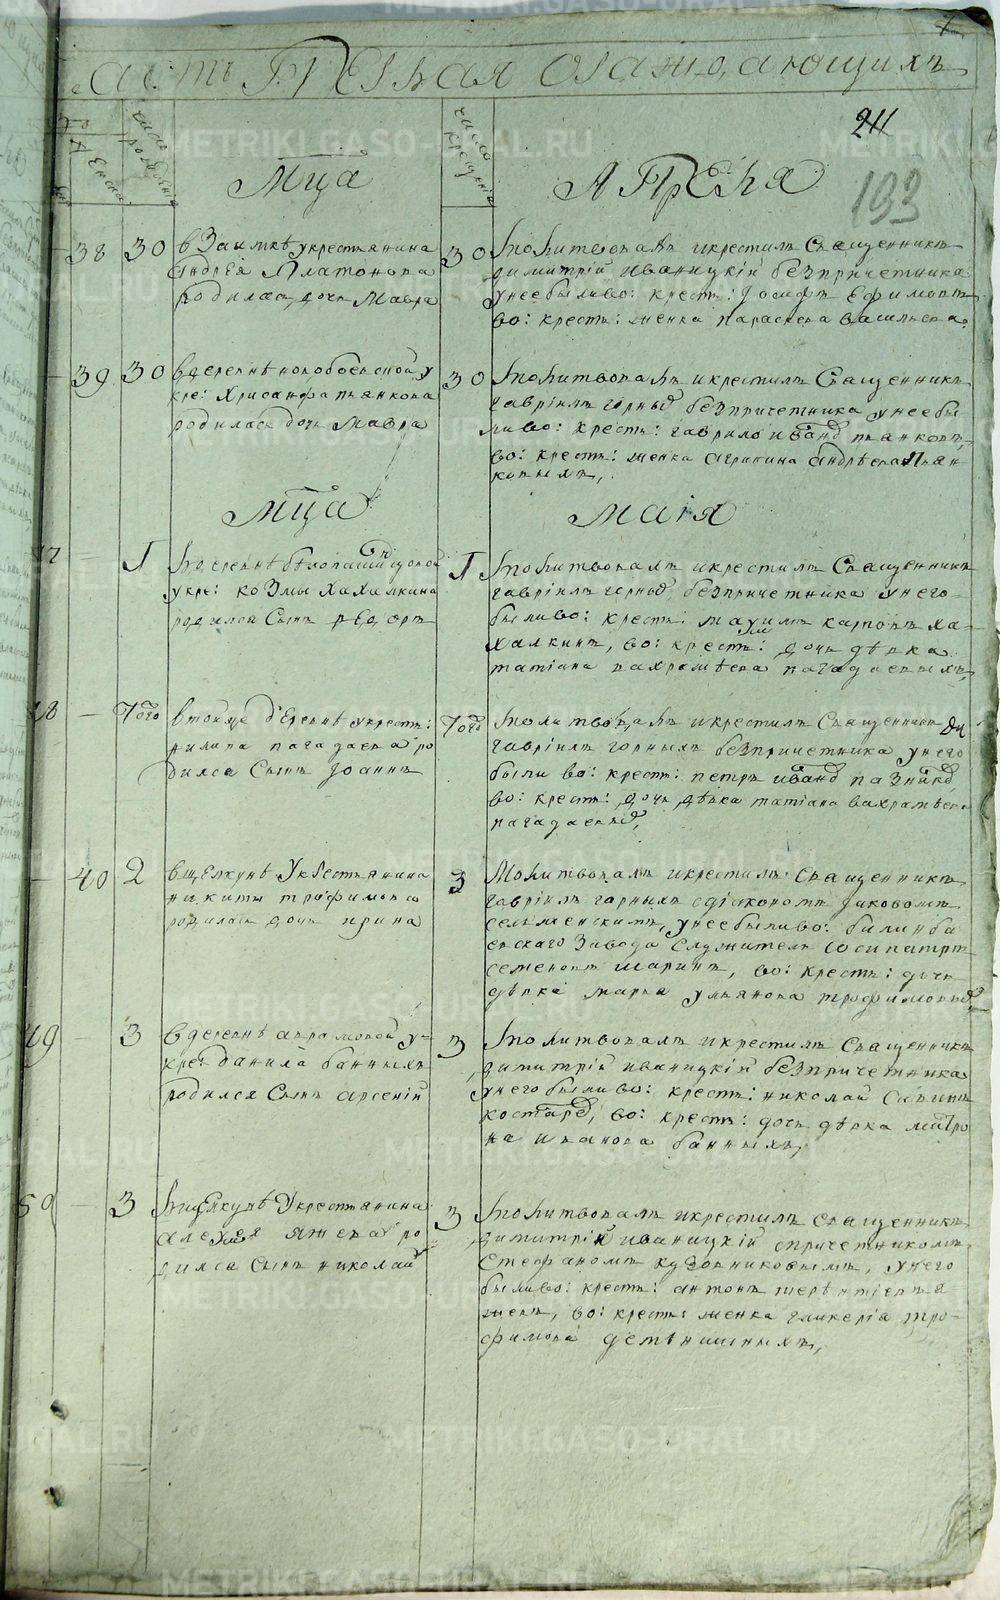 Часть Первая ораждающихъ
211
193
число рождения
число крещения
Мца Апреля
38 30 в Заимкѣ укрестьянина
Андрея Платонова
родилась дочь Мавра
30 молитвовалъ икрестилъ Священникъ
димитрїй иваницкїй безпричетника
унее были во: крест: Іосифъ Ефимовъ
во: крестъ: женка параскева васильева
39 30 вдеревнѣ новобоевской у
кре: Хрисанфа панкова
родилась дочь Мавра
30 молитвовалъ икрестилъ Священникъ
гаврїилъ горных безпричетника унее бы
ли во: крестъ: гаврило иванов панковъ,
во: крестъ: женка агрипина андрѣева пан
ковыхъ,
Мца Маія
47 1 вдеревнѣ
укре: козмы Хахалкина
родился Сынъ Ѳедоръ
1 молитвовалъ икрестилъ Священникъ
гаврїилъ горных безпричетника унего
были во: крестъ: максимъ карповъ ха
халкинъ, во: крестъ: дочь дѣвка
татїана вахрамѣева пагадаевыхъ,
48 Того втойже деревнѣ укрестъ:
филипа пагадаева ро
дился Сынъ Іоаннъ
Того молитвовалъ икрестилъ Священникъ
гаврїилъ горныхъ безпричетника унего
были во: крестъ: петръ иванов пазников
во: крестъ: дочь дѣвка татїана вахрамѣева
пагадаевых,
40 2 вщелкунѣ Укрестьянина
никиты трофимова
родилась дочь ирина
3 Молитвовалъ икрестилъ Священникъ
гаврїилъ горныхъ сдїакономъ Іаковомъ
селменскимъ, унее были во: билимба
евскаго Завода Служитель Сосипатръ
семеновъ шаринъ, во: крестъ: дочь
дѣвка марья ульянова трофимовых
49 3 вдеревнѣ аврамовой у
кре: данила банныхъ
родился Сынъ арсенїй
3 молитвовалъ икрестилъ Священникъ
димитрїй иваницкїй безпричетника
унего были во: крестъ: николай Савинъ
костарев, во: крестъ: дочь дѣвка матро
на иванова банныхъ,
50 3 вщелкунѣ Укрестьянина
алексея яжева ро
дился Сынъ николай
3 молитвовалъ икрестилъ Священникъ
димитрїй иваницкїй спричетникомъ
Стефаномъ кудовниковымъ, унего
были во: крестъ: антонъ терентїевъ я
жевъ, во: крестъ: женка гликерїа тро
фимова
METRIKI.GASO-URAL.RU